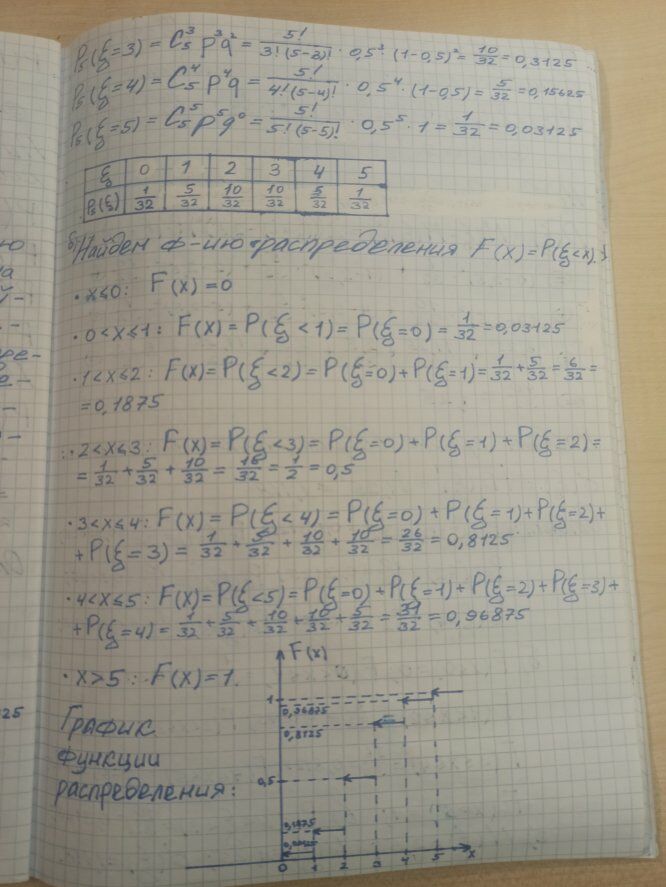 P₅(ξ=3) = C₅³ p³q² = 5!/(3!(5-3)!) · 0,5³ · (1-0,5)² = 10/32 = 0,3125
P₅(ξ=4) = C₅⁴ p⁴q = 5!/(4!(5-4)!) · 0,5⁴ · (1-0,5) = 5/32 = 0,15625
P₅(ξ=5) = C₅⁵ p⁵q⁰ = 5!/(5!(5-5)!) · 0,5⁵ · 1 = 1/32 = 0,03125
ξ 0 1 2 3 4 5
P₅(ξ) 1/32 5/32 10/32 10/32 5/32 1/32
б) Найдем ф-ию распределения F(x) = P(ξ<x).
· x≤0: F(x) = 0
· 0<x≤1: F(x) = P(ξ<1) = P(ξ=0) = 1/32 = 0,03125
· 1<x≤2: F(x) = P(ξ<2) = P(ξ=0) + P(ξ=1) = 1/32 + 5/32 = 6/32 =
= 0,1875
· 2<x≤3: F(x) = P(ξ<3) = P(ξ=0) + P(ξ=1) + P(ξ=2) =
= 1/32 + 5/32 + 10/32 = 16/32 = 1/2 = 0,5
· 3<x≤4: F(x) = P(ξ<4) = P(ξ=0) + P(ξ=1) + P(ξ=2) +
+ P(ξ=3) = 1/32 + 5/32 + 10/32 + 10/32 = 26/32 = 0,8125
· 4<x≤5: F(x) = P(ξ<5) = P(ξ=0) + P(ξ=1) + P(ξ=2) + P(ξ=3) +
+ P(ξ=4) = 1/32 + 5/32 + 10/32 + 10/32 + 5/32 = 31/32 = 0,96875
· x>5: F(x) = 1.
График
функции
распределения:
F(x)
1
0,96875
0,8125
0,5
0,1875
0 1 2 3 4 5 x